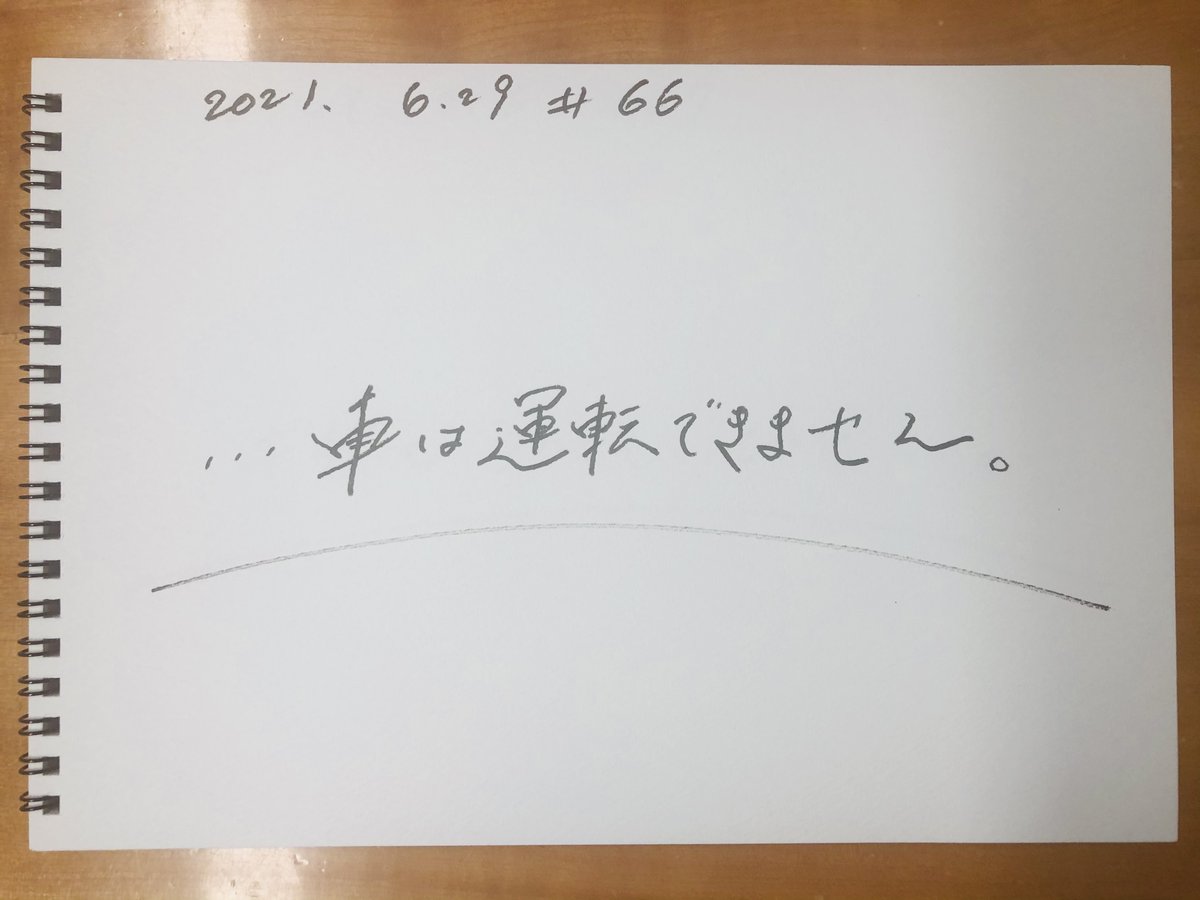 2021. 6.29 # 66
...車は運転できません。